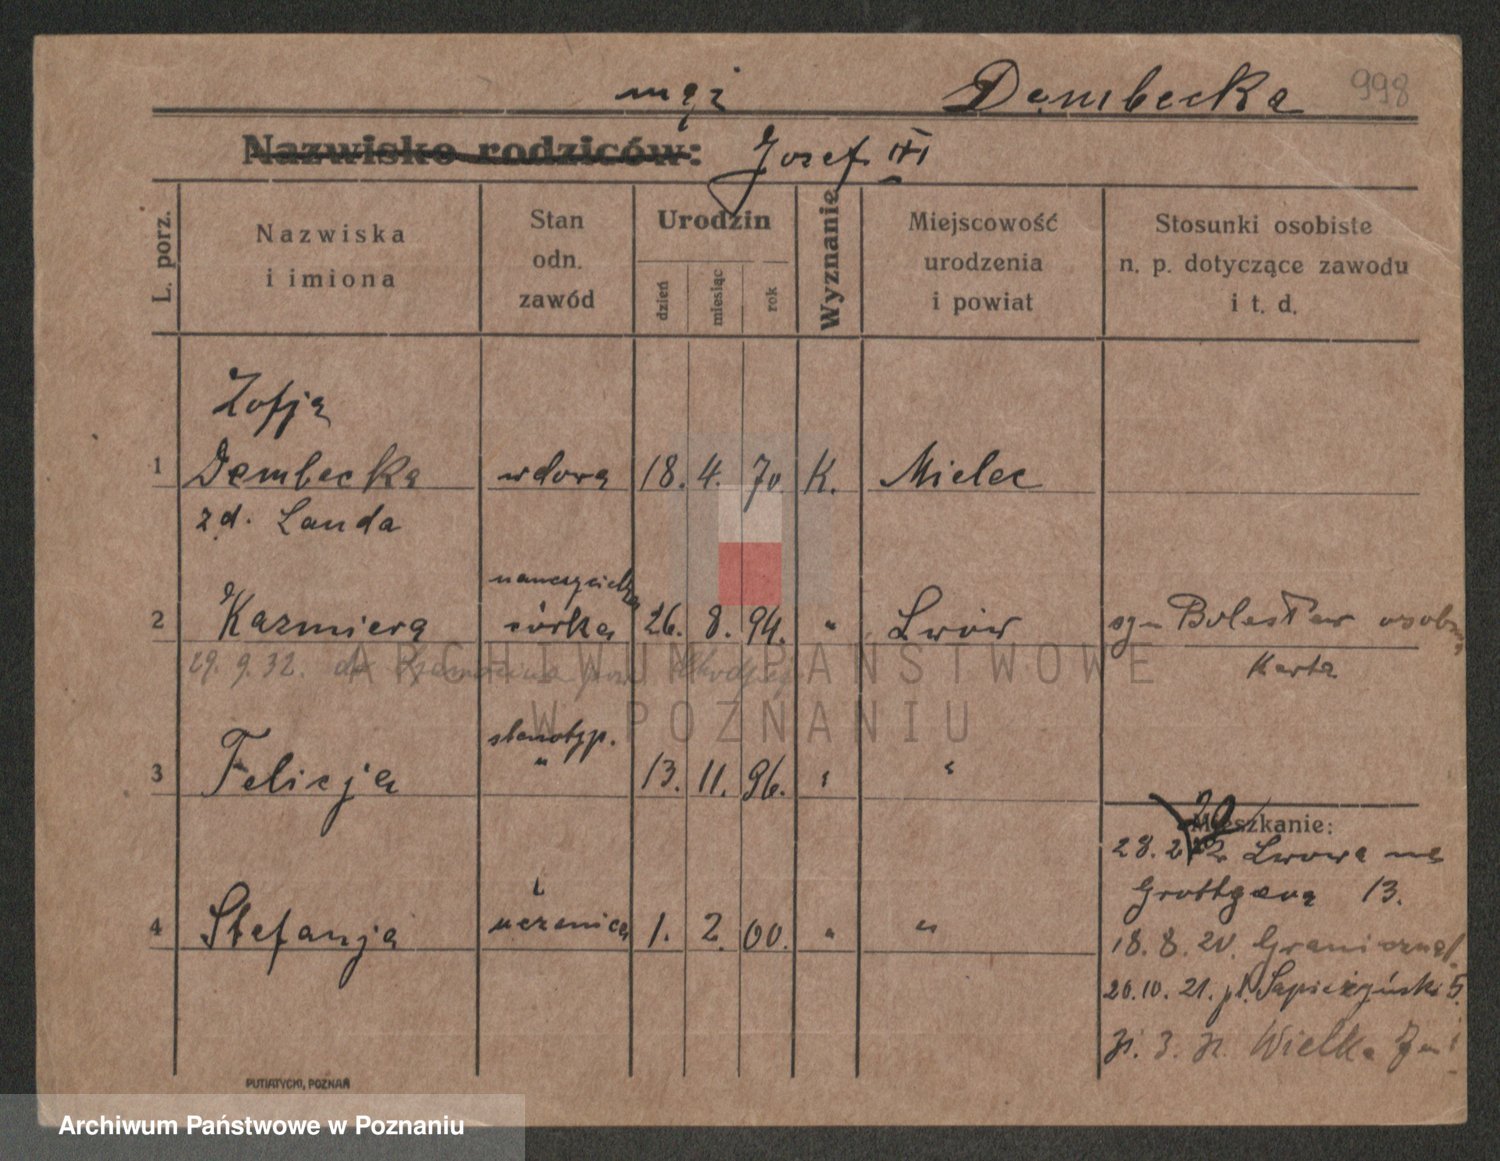 mąż Dembecka 998
Nazwisko rodziców: Jozef
L. porz.
Nazwiska
i imiona
Stan
odn.
zawód
Urodzin
dzień
miesiąc
rok
Wyznanie
Miejscowość
urodzenia
i powiat
Stosunki osobiste
n. p. dotyczące zawodu
i t. d.
Zofja
1 Dembecka wdowa 18. 4. 70 K. Mielec
z d. Landa
2 Kazmiera córka 26. 8. 94. " Lwów syn Bolesław osobna
karta
29. 9. 32.
ARCHIWUM PAŃSTWOWE
W POZNANIU
stenotyp.
3 Felicja " 13. 11. 96. " "
Mieszkanie:
Lwowa
Grottgera 13.
4 Stefanja uczenica 1. 2. 00. " "
18. 8. 20.
20. 10. 21. pl. Sapieżyński 5.
Wielka
PUTIATYCKI, POZNAŃ
Archiwum Państwowe w Poznaniu